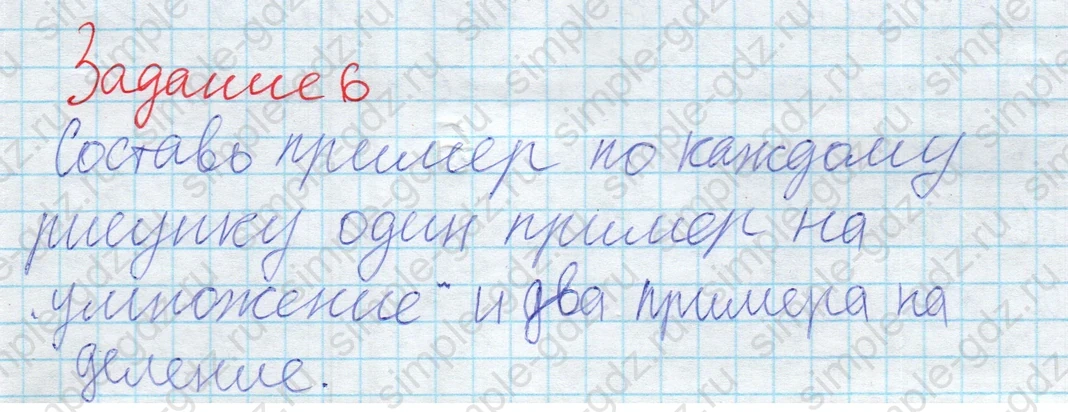 Задание 6
Составь пример по каждому
рисунку один пример на
„умножение" и два примера на
деление.